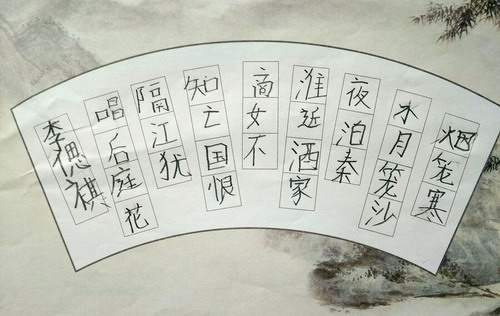 烟笼寒
水月笼沙
夜泊秦
淮近酒家
商女不
知亡国恨
隔江犹
唱后庭花
李偲祺